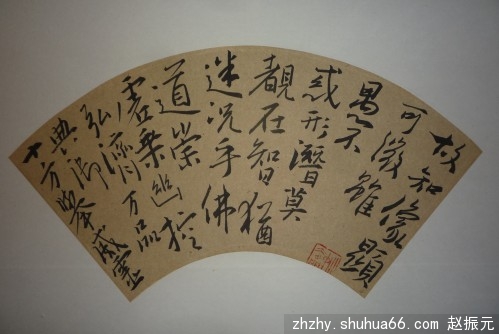 故知像顯
可徵雖
愚不
惑形潛莫
覩在智猶
迷況乎佛
道崇
虛乘幽控
弘濟万品
典御
十方舉威靈
zhzhy.shuhua66.com 赵振元